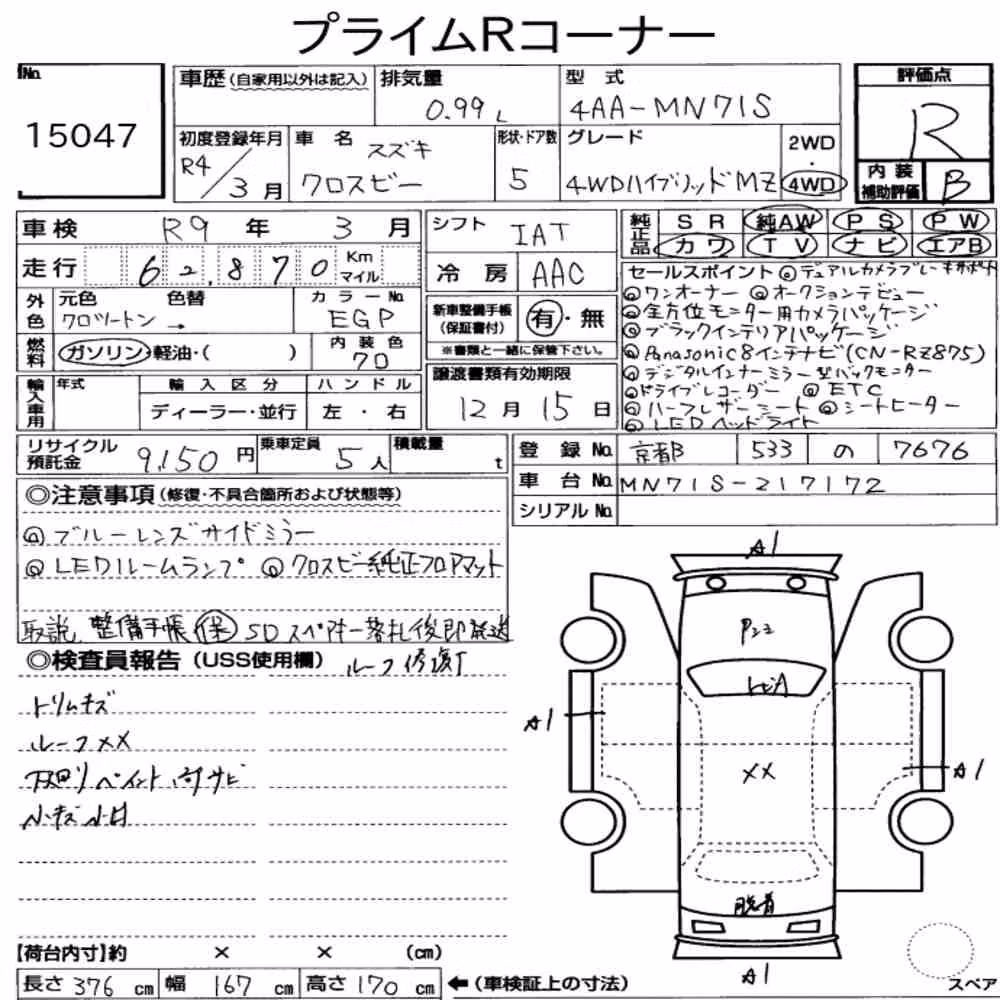 プライムRコーナー
No.
15047
車歴(自家用以外は記入)
排気量
0.99 L
型 式
4AA-MN71S
初度登録年月
R4/3月
車 名
スズキ
クロスビー
形状・ドア数
5
グレード
4WDハイブリッドMZ
2WD
・
4WD
評価点
R
内 装
補助評価
B
車検 R9 年 3 月
走行 6 2, 8 7 0 Km
マイル
外色
元色 色替
クロツートン →
カラーNo.
EGP
燃料
ガソリン・軽油・( )
内 装 色
70
輸入車用
年式
輸 入 区 分
ディーラー・並行
ハ ン ド ル
左 ・ 右
シフト IAT
冷 房 AAC
新車整備手帳
(保証書付)
有・無
※書類と一緒に保管下さい。
譲渡書類有効期限
12月 15日
純正品
SR 純AW PS PW
カワ TV ナビ エアB
セールスポイント ◎デュアルカメラブレーキサポート
◎ワンオーナー ◎オークションデビュー
◎全方位モニター用カメラパッケージ
◎ブラックインテリアパッケージ
◎Panasonic8インチナビ(CN-RZ875)
◎デジタルインナーミラー型バックモニター
◎ドライブレコーダー ◎ETC
◎ハーフレザーシート ◎シートヒーター
◎LEDヘッドライト
リサイクル
預託金
9,150 円
乗車定員
5 人
積載量
t
登 録 No. 京都 533 の 7676
車 台 No. MN71S-217172
シリアル No.
◎注意事項(修復・不具合箇所および状態等)
◎ブルーレンズサイドミラー
◎LEDルームランプ ◎クロスビー純正フロアマット
取説 整備手帳 (保) SD スペアキー落札後即発送
◎検査員報告(USS使用欄) ルーフ修復
トリムキズ
ルーフ××
下回りペイント サビ
小キズ小凹
A1
トビA
A1
××
A1
脱着
A1
【荷台内寸】約 × × (cm)
長さ 376 cm 幅 167 cm 高さ 170 cm ←(車検証上の寸法)
スペア